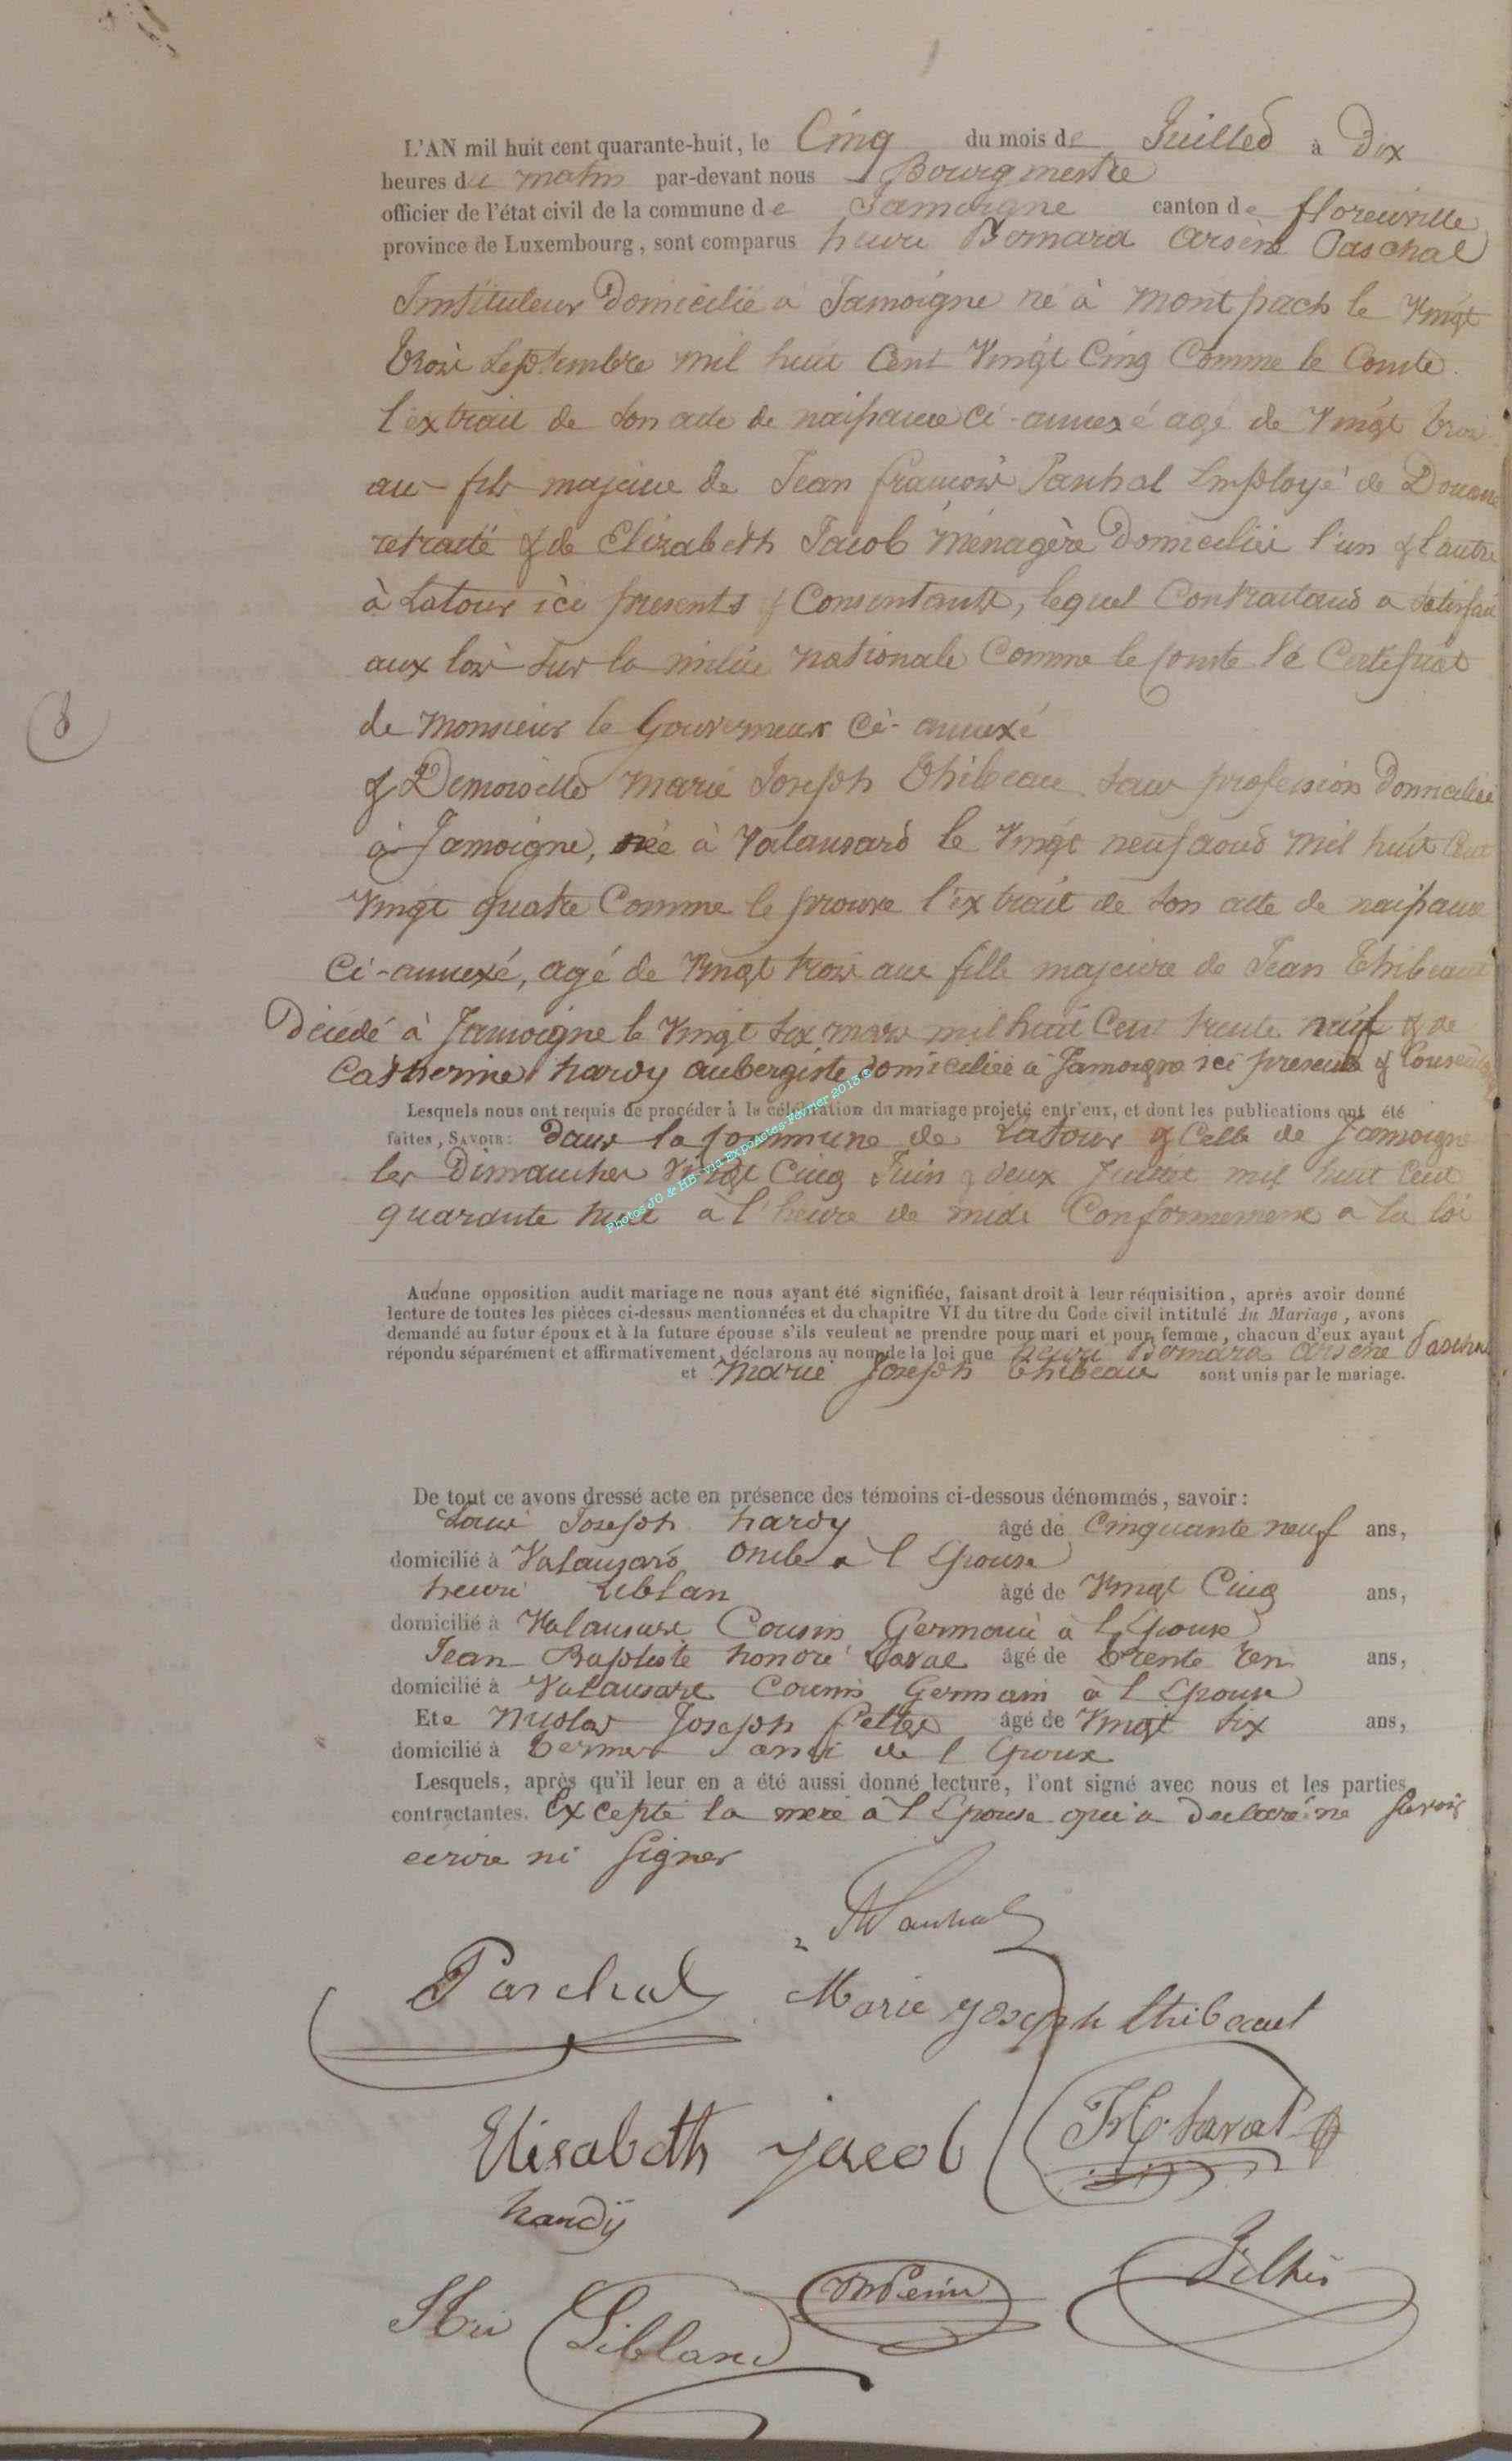 L'AN mil huit cent quarante-huit, le Cinq du mois de Juillet à Dix
heures du matin par-devant nous Bourgmestre
officier de l'état civil de la commune de Jamoigne canton de florenville
province de Luxembourg, sont comparus henri Bernard Arsène Paschal
Instituteur Domicilié à Jamoigne né à montpach le Vingt
trois Septembre mil huit Cent Vingt Cinq Comme le Conste
l'extrait de son acte de naissance ci-annexé agé de Vingt trois
ans fils majeur de Jean françois Paschal Employé de Douane
retraité & de Elizabeth Jacob Ménagère Domiciliés l'un & l'autre
à Latour ici presents & Consentants, lequel Contractant a satisfait
aux lois sur la milice nationale Comme le Conste le Certificat
de Monsieur le Gouverneur Ci-annexé
8
& Demoiselle Marie Joseph Thibeau sans profession Domiciliée
à Jamoigne, née à Valansart le Vingt neuf aout mil huit Cent
Vingt quatre Comme le prouve l'extrait de son acte de naissance
Ci-annexé, agé de Vingt trois ans fille majeure de Jean Thibeau
Décédé à Jamoigne le Vingt six mars mil huit Cent trente neuf & de
Catherine hardy aubergiste domiciliée à Jamoigne ici presente &
Lesquels nous ont requis de procéder à la célébration du mariage projeté entr'eux, et dont les publications ont été
faites, SAVOIR: Dans la Commune de Latour & Celle de Jamoigne
les Dimanches Vingt Cinq Juin & deux Juillet mil huit Cent
quarante huit à l'heure de midi Conformement a la loi
Photos JO & HB via ExpoActes-Février 2013
Aucune opposition audit mariage ne nous ayant été signifiée, faisant droit à leur réquisition, après avoir donné
lecture de toutes les pièces ci-dessus mentionnées et du chapitre VI du titre du Code civil intitulé du Mariage, avons
demandé au futur époux et à la future épouse s'ils veulent se prendre pour mari et pour femme, chacun d'eux ayant
répondu séparément et affirmativement, déclarons au nom de la loi que henri Bernard Arsène Paschal
et Marie Joseph Thibeau sont unis par le mariage.
De tout ce avons dressé acte en présence des témoins ci-dessous dénommés, savoir:
Joseph hardy âgé de Cinquante neuf ans,
domicilié à Valansart oncle a l Epouse
henri Liblan âgé de Vingt Cinq ans,
domicilié à Valansart Cousin Germain à l Epouse
Jean Baptiste honoré Laval âgé de trente un ans,
domicilié à Valansart Cousin Germain à l Epouse
Et Nicolas Joseph âgé de Vingt six ans,
domicilié à termes ami de l Epoux
Lesquels, après qu'il leur en a été aussi donné lecture, l'ont signé avec nous et les parties
contractantes. Excepté la mere à l Epouse qui a declaré ne savoir
ecrire ni signer
Paschal
Paschal Marie joseph thibeau
Elisabeth jacob Laval
hardÿ
Hri Libland